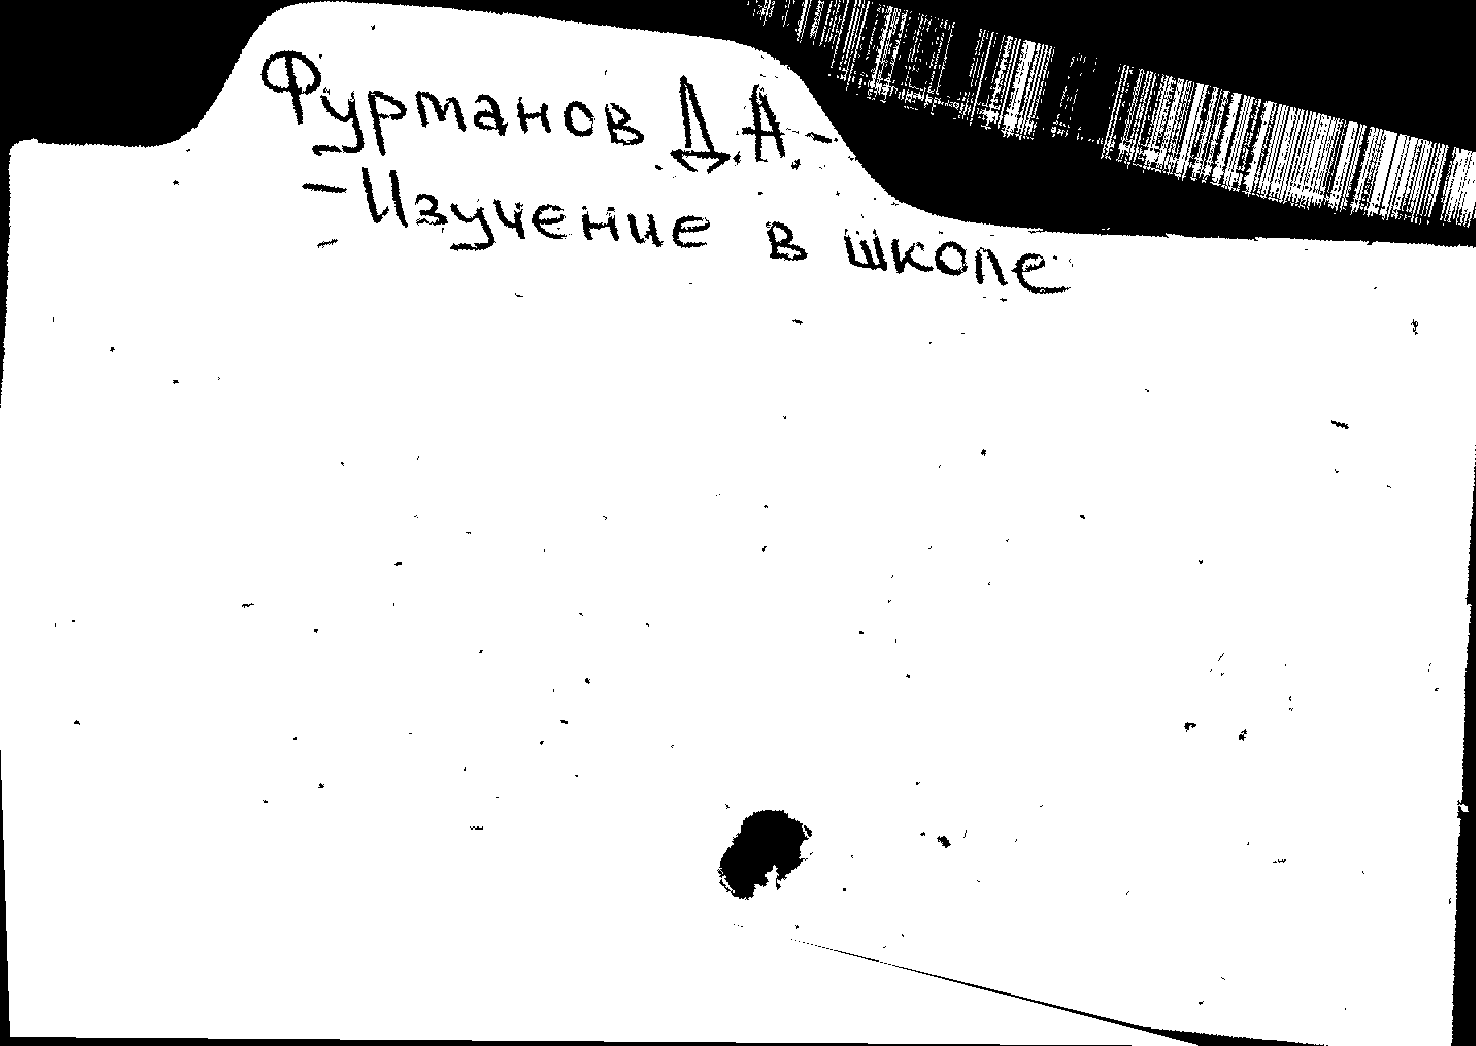 Фурманов Д.А.-
-Изучение в школе